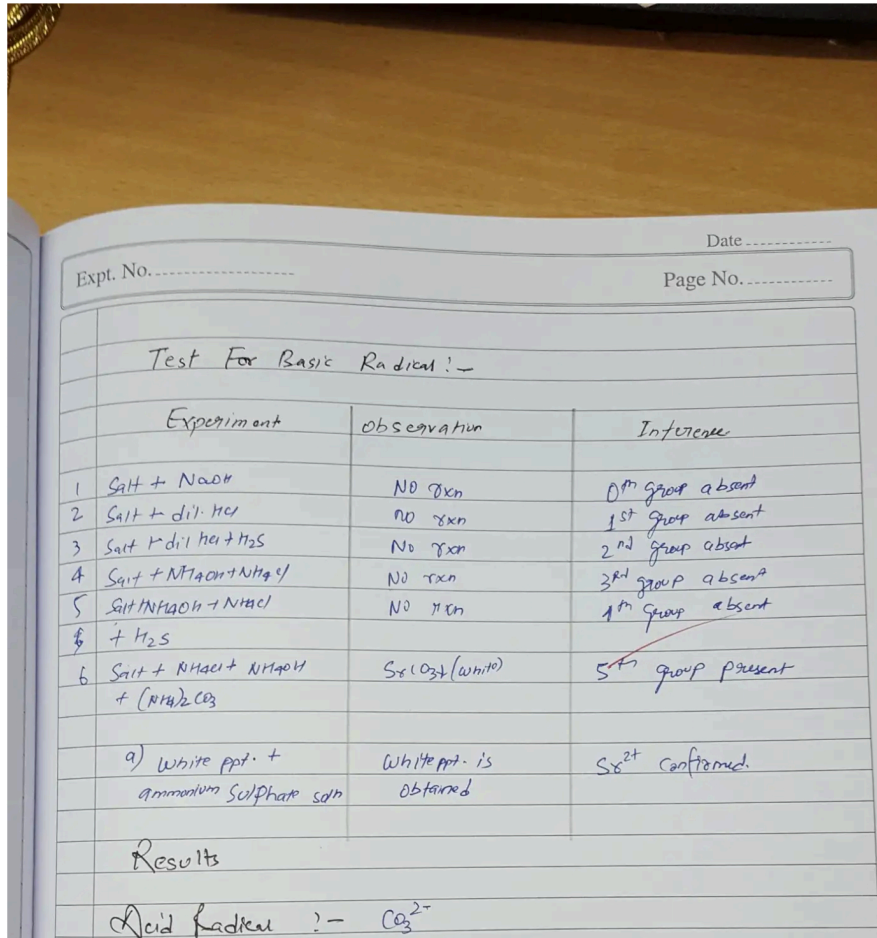 Date
Expt. No.
Page No.
Test For Basic Radical :-
Experiment Observation Inference
1 Salt + NaOH No rxn 0th group absent
2 Salt + dil. HCl no rxn 1st group absent
3 Salt + dil HCl + H2S No rxn 2nd group absent
4 Salt + NH4OH + NH4Cl No rxn 3rd group absent
5 Salt + NH4OH + NH4Cl No rxn 4th group absent
+ H2S
6 Salt + NH4Cl + NH4OH SrCO3↓ (white) 5th group present
+ (NH4)2CO3
a) White ppt. + White ppt. is Sr2+ confirmed.
ammonium Sulphate soln obtained
Results
Acid Radical :- CO3 2-